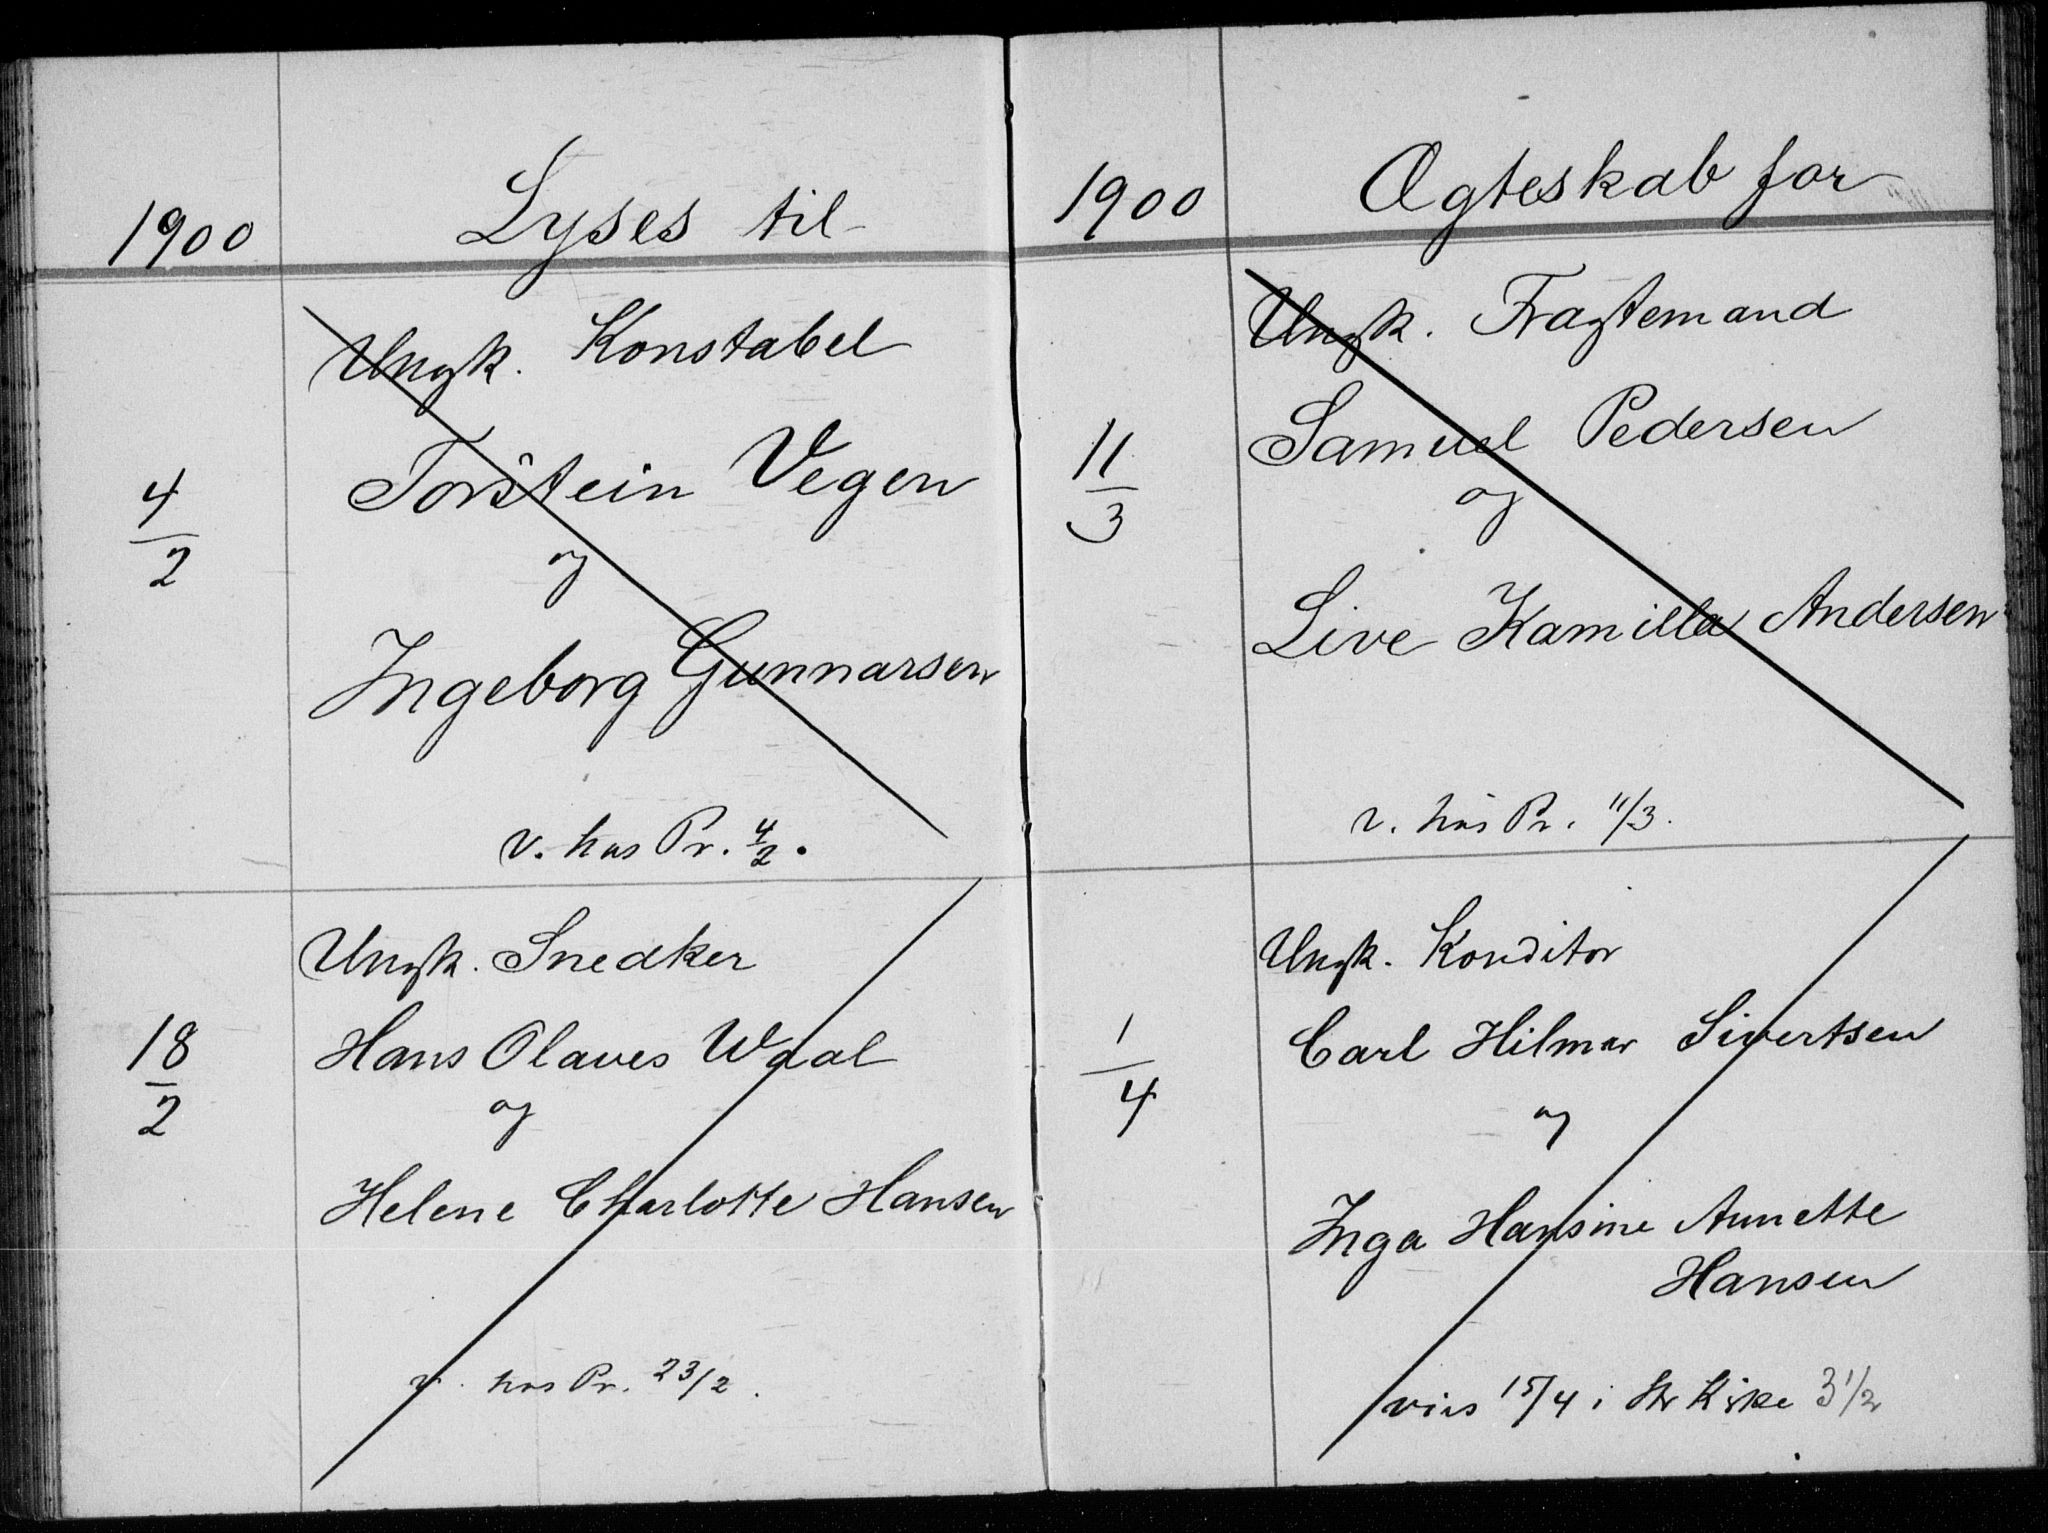 1900 Lyses til
Ungk. Konstabel
4/2 Torstein Vegen
og
Ingeborg Gunnarsen
v. hos Pr. 4/2.
Ungk. Snedker
18/2 Hans Olaues Waal
og
Helene Charlotte Hansen
v. hos Pr. 23/2.
1900 Ægteskab for
Ungk. Fragtemand
11/3 Samuel Pedersen
og
Live Kamilla Andersen
v. hos Pr. 11/3.
Ungk. Konditor
1/4 Carl Hilmar Sivertsen
og
Inga Hansine Annette
Hansen
vies 15/4 i Kirke 3 1/2